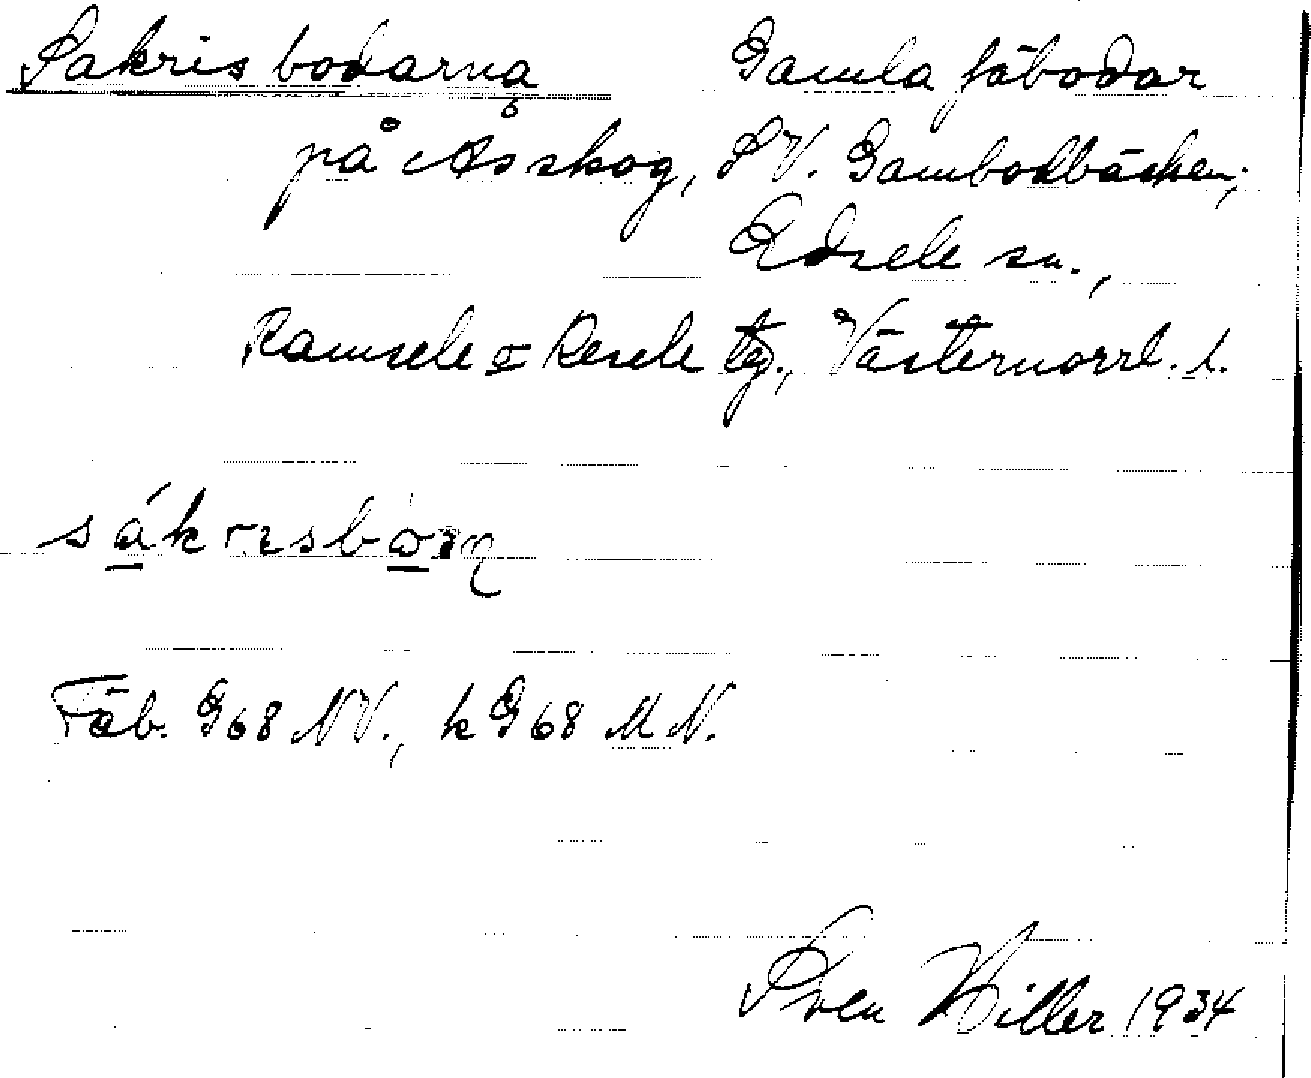 Sakris bodarna Gamla fäbodar
på Åsskog, S V. Gambodbäcken,
Edsele sn.,
Ramsele o Resele tg., Västernorrl. l.
sákrisb
Fäb. G68 NV., k G68 M N.
Sven Hiller 1934